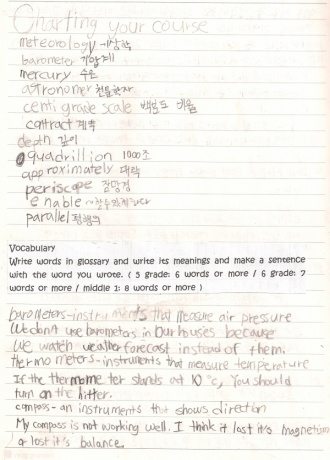 Charting your course
meteorology 기상학
barometer 기압계
mercury 수은
astronomer 천문학자
centi grade scale 백분도 비율
contract 계약
depth 깊이
quadrillion 1000조
approximately 대략
periscope 잠망경
enable
parallel 평행의
Vocabulary
Write words in glossary and write its meanings and make a sentence
with the word you wrote. ( 5 grade: 6 words or more / 6 grade: 7
words or more / middle 1: 8 words or more )
barometers-instruments that measure air pressure
We don't use barometers in our houses because
we watch weather forecast instead of them.
thermo meters-instruments that measure temperature
If the thermometer stands at 10 °c, you should
turn on the hitter.
compass-an instruments that shows direction
My compass is not working well. I think it lost it's magnetism
or lost it's balance.